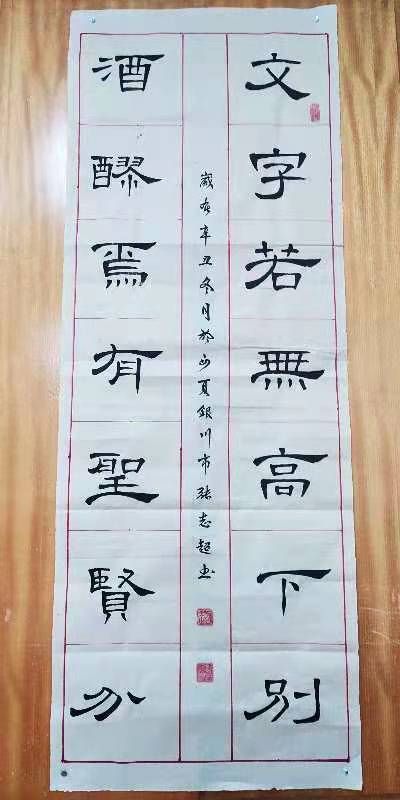 文字若無高下別
歲在辛丑冬月於寧夏銀川市張志超書
酒醪焉有聖賢分